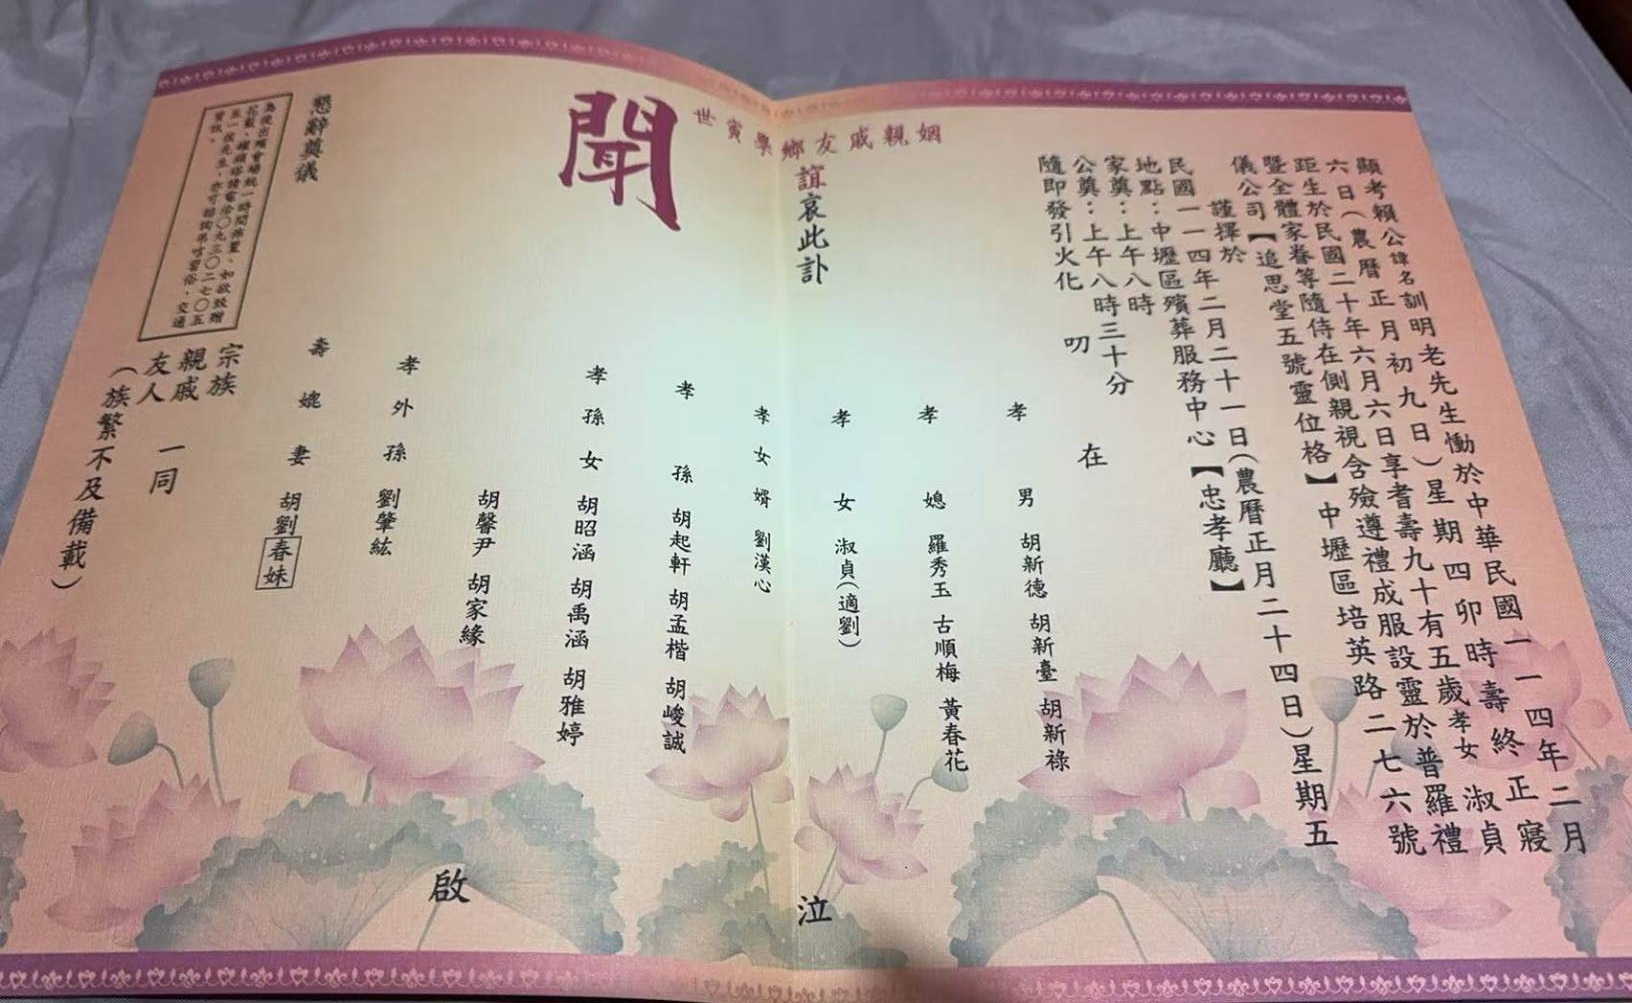 顯考賴公諱名訓明老先生慟於中華民國一一四年二月
六日(農曆正月初九日)星期四卯時壽終正寢
距生於民國二十年六月六日享耆壽九十有五歲孝女淑貞
暨全體家眷等隨侍在側親視含殮遵禮成服設靈於普羅禮
儀公司【追思堂五號靈位格】中壢區培英路二七六號
謹擇於
民國一一四年二月二十一日(農曆正月二十四日)星期五
地點:中壢區殯葬服務中心【忠孝廳】
家奠:上午八時
公奠:上午八時三十分
隨即發引火化
叨
在
姻親戚友鄉學寅世
誼哀此訃
聞
孝男 胡新德 胡新臺 胡新祿
孝媳 羅秀玉 古順梅 黃春花
孝女 淑貞(適劉)
孝女婿 劉漢心
孝孫 胡起軒 胡孟楷 胡峻誠
孝孫女 胡昭涵 胡禹涵 胡雅婷
胡馨尹 胡家緣
孝外孫 劉肇紘
壽媲妻 胡劉春妹
泣
啟
懇辭奠儀
宗族
親戚 一同
友人
(族繁不及備載)